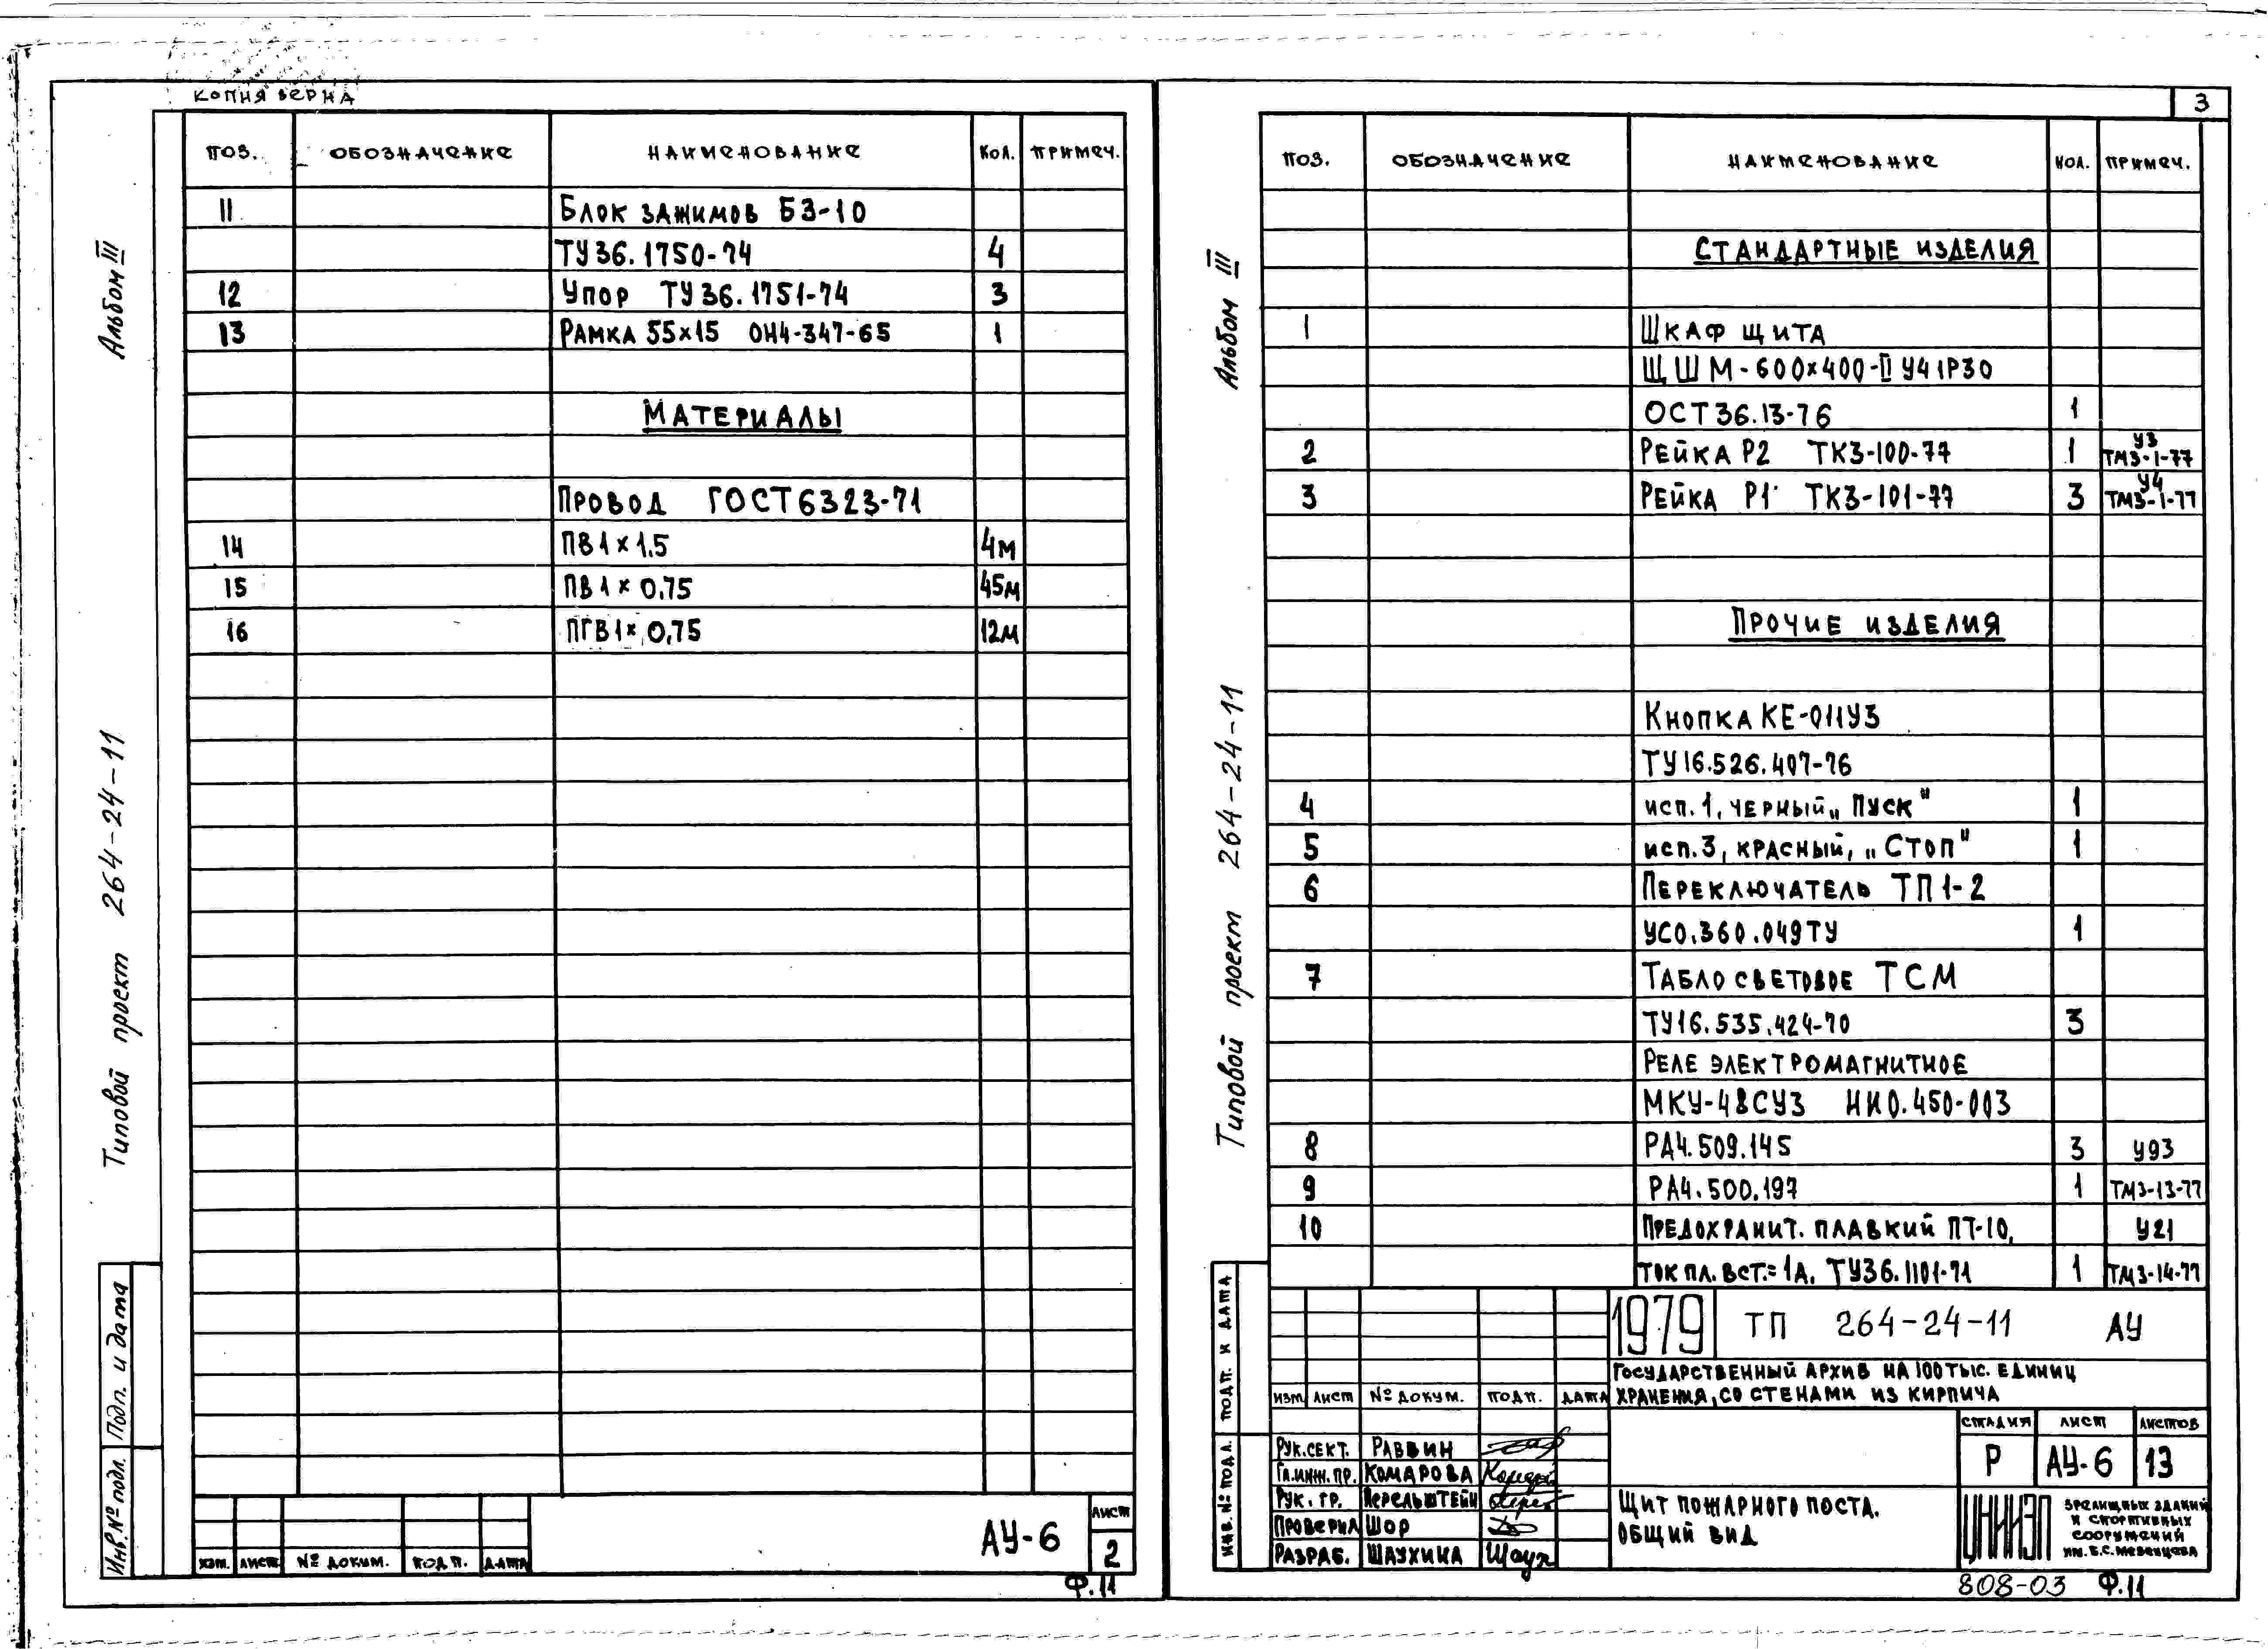 КОПИЯ ВЕРНА
Альбом III
Типовой проект 264-24-11
Инв. № подл. Подп. и дата
ПОЗ. ОБОЗНАЧЕНИЕ НАИМЕНОВАНИЕ КОЛ. ПРИМЕЧ.
11 БЛОК ЗАЖИМОВ БЗ-10
ТУ36.1750-74 4
12 УПОР ТУ36.1751-74 3
13 РАМКА 55×15 ОН4-347-65 1
МАТЕРИАЛЫ
ПРОВОД ГОСТ 6323-71
14 ПВ1×1,5 4м
15 ПВ1×0,75 45м
16 ПГВ1×0,75 12м
ИЗМ. ЛИСТ № ДОКУМ. ПОДП. ДАТА
АУ-6
ЛИСТ
2
Ф.11
3
Альбом III
Типовой проект 264-24-11
ИНВ. № ПОДЛ. ПОДП. И ДАТА
ПОЗ. ОБОЗНАЧЕНИЕ НАИМЕНОВАНИЕ КОЛ. ПРИМЕЧ.
СТАНДАРТНЫЕ ИЗДЕЛИЯ
1 ШКАФ ЩИТА
ЩШМ-600×400-II У4 IР30
ОСТ 36.13-76 1
2 РЕЙКА Р2 ТК3-100-77 1 У3 ТМ3-1-77
3 РЕЙКА Р1 ТК3-101-77 3 У4 ТМ3-1-77
ПРОЧИЕ ИЗДЕЛИЯ
КНОПКА КЕ-011У3
ТУ16.526.407-76
4 ИСП. 1, ЧЕРНЫЙ „ПУСК" 1
5 ИСП. 3, КРАСНЫЙ, „СТОП" 1
6 ПЕРЕКЛЮЧАТЕЛЬ ТП1-2
УСО.360.049ТУ 1
7 ТАБЛО СВЕТОВОЕ ТСМ
ТУ16.535.424-70 3
РЕЛЕ ЭЛЕКТРОМАГНИТНОЕ
МКУ-48СУ3 НИ0.450-003
8 РА4.509.145 3 У93
9 РА4.500.197 1 ТМ3-13-77
10 ПРЕДОХРАНИТ. ПЛАВКИЙ ПТ-10, У21
ТОК ПЛ. ВСТ.=1А, ТУ36.1101-71 1 ТМ3-14-77
1979 ТП 264-24-11 АУ
ГОСУДАРСТВЕННЫЙ АРХИВ НА 100 ТЫС. ЕДИНИЦ
ХРАНЕНИЯ, СО СТЕНАМИ ИЗ КИРПИЧА
ИЗМ ЛИСТ № ДОКУМ. ПОДП. ДАТА
СТАДИЯ ЛИСТ ЛИСТОВ
Р АУ-6 13
РУК. СЕКТ. РАВВИН
ГЛ. ИНЖ. ПР. КОМАРОВА
РУК. ГР. ПЕРЕЛЬШТЕЙН
ПРОВЕРИЛ ШОР
РАЗРАБ. ШАУХИНА
ЩИТ ПОЖАРНОГО ПОСТА.
ОБЩИЙ ВИД
ЦНИИЭП
ЗРЕЛИЩНЫХ ЗДАНИЙ
И СПОРТИВНЫХ
СООРУЖЕНИЙ
ИМ. Б.С. МЕЗЕНЦЕВА
808-03 Ф.11